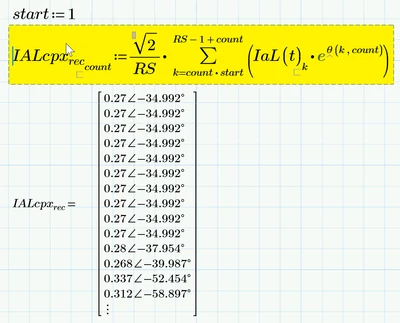 start:=1
IALcpx_rec_count := √2/RS · ∑_{k=count·start}^{RS−1+count} (IaL(t)_k · e^{θ(k,count)})
0.27∠−34.992°
0.27∠−34.992°
0.27∠−34.992°
0.27∠−34.992°
0.27∠−34.992°
0.27∠−34.992°
0.27∠−34.992°
IALcpx_rec = 0.27∠−34.992°
0.27∠−34.992°
0.27∠−34.992°
0.28∠−37.954°
0.268∠−39.987°
0.337∠−52.454°
0.312∠−58.897°
⋮